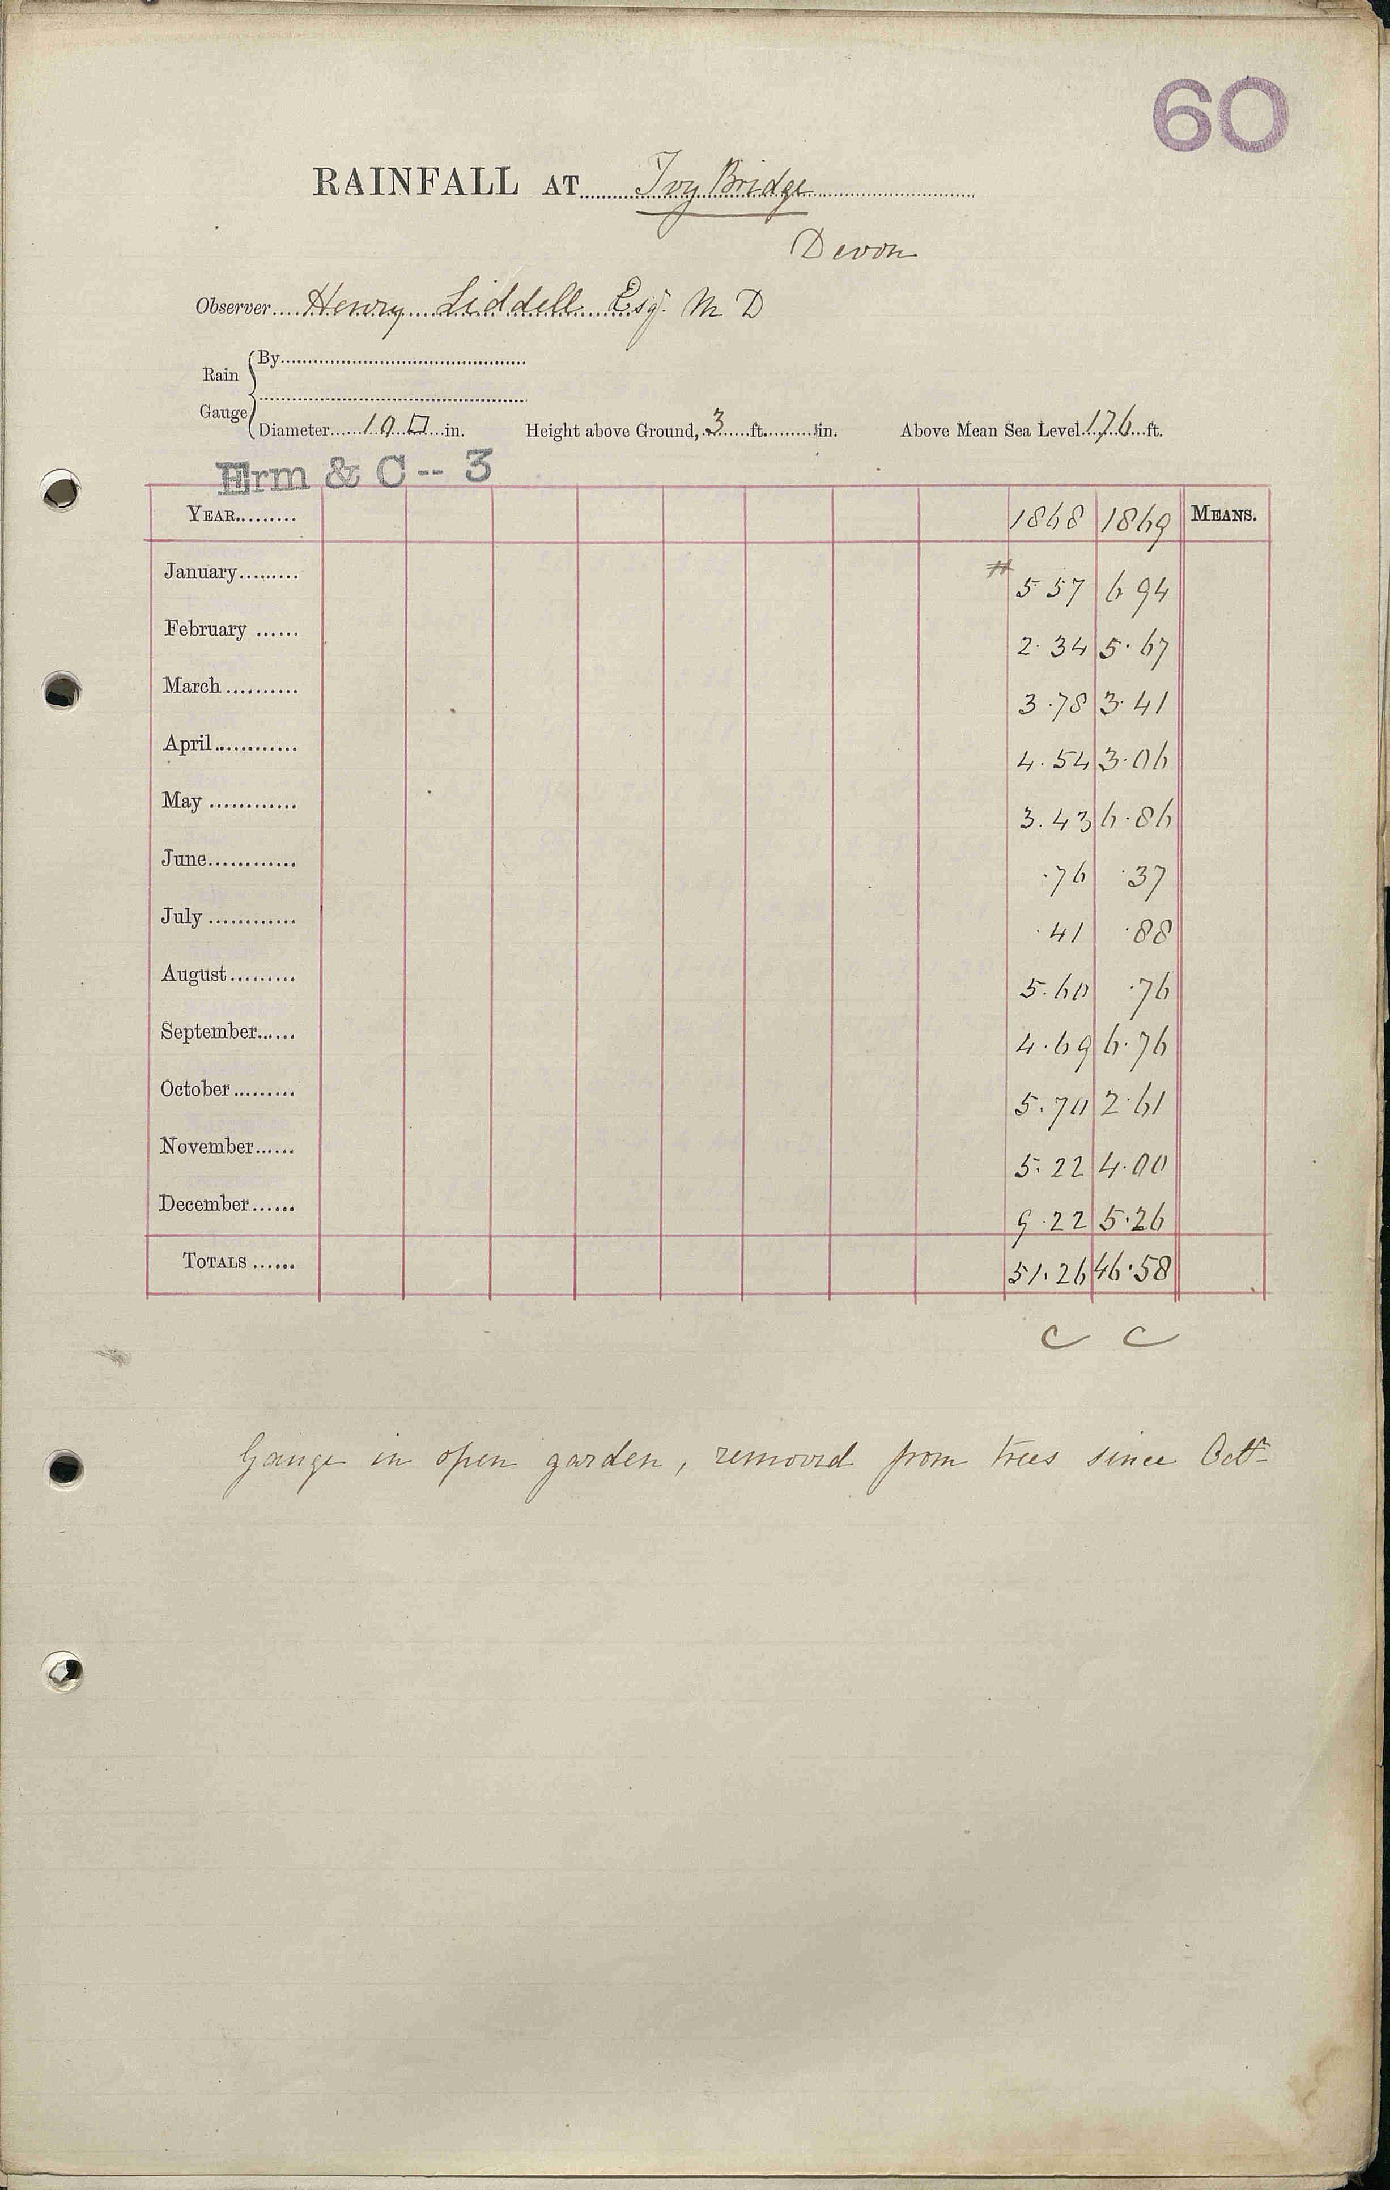 60
RAINFALL AT Ivy Bridge
Devon
Observer Henry Liddell Esq. M D
Rain Gauge
By
Diameter 10 □ in. Height above Ground, 3 ft. in. Above Mean Sea Level 176 ft.
Erm & C -- 3
YEAR 1868 1869 MEANS.
January # 5 57 6 94
February 2.34 5.67
March 3.78 3.41
April 4.54 3.06
May 3.43 6.86
June .76 .37
July .41 .88
August 5.60 .76
September 4.69 6.76
October 5.70 2.61
November 5.22 4.00
December 9.22 5.26
TOTALS 51.26 46.58
C C
Gauge in open garden, removed from trees since Octr